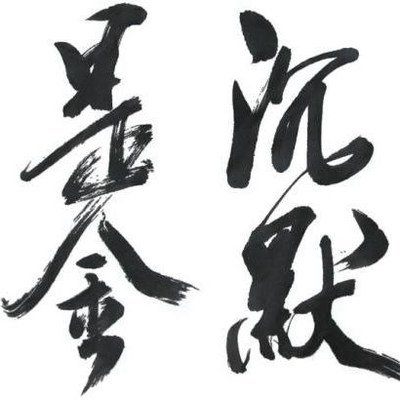 沉默
是金